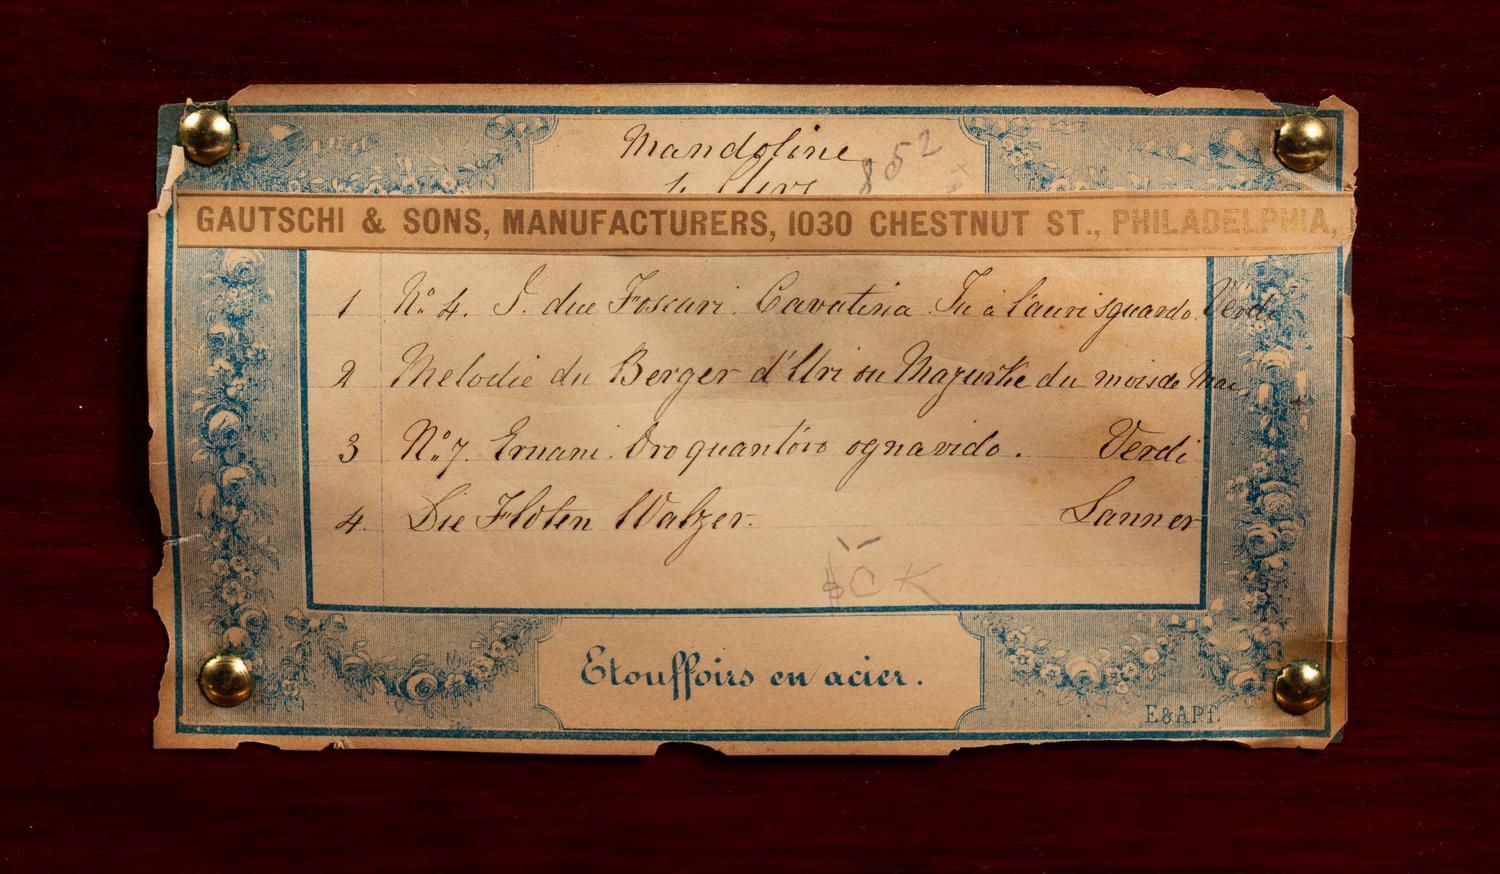 Mandoline
852
4 Airs
GAUTSCHI & SONS, MANUFACTURERS, 1030 CHESTNUT ST., PHILADELPHIA,
1 No. 4. I. due Foscari. Cavatina Tu à l'auri sguardo. Verdi
2 Melodie du Berger d'Uri ou Mazurke du mois de Mai
3 No. 7. Ernani. Oro quant'oro ognavido. Verdi
4. Die Flöten Walzer. Lanner
CK
Etouffoirs en acier.
E&APf.